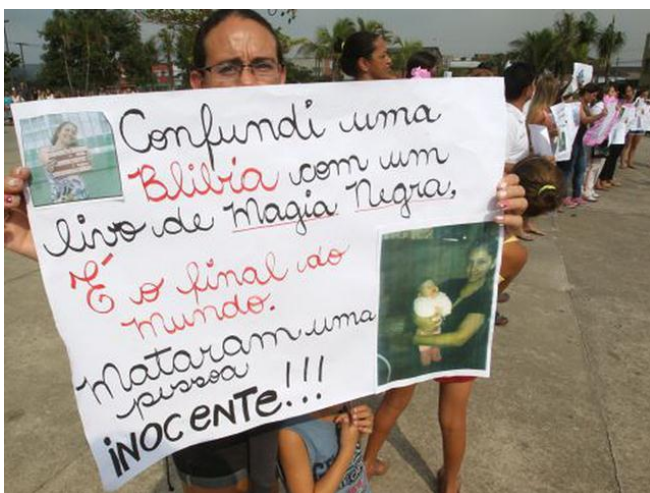 Confundi uma
Blibia com um
livo de Magia Negra,
É o final do
mundo.
Mataram uma
pissoa
iNOCENTe!!!